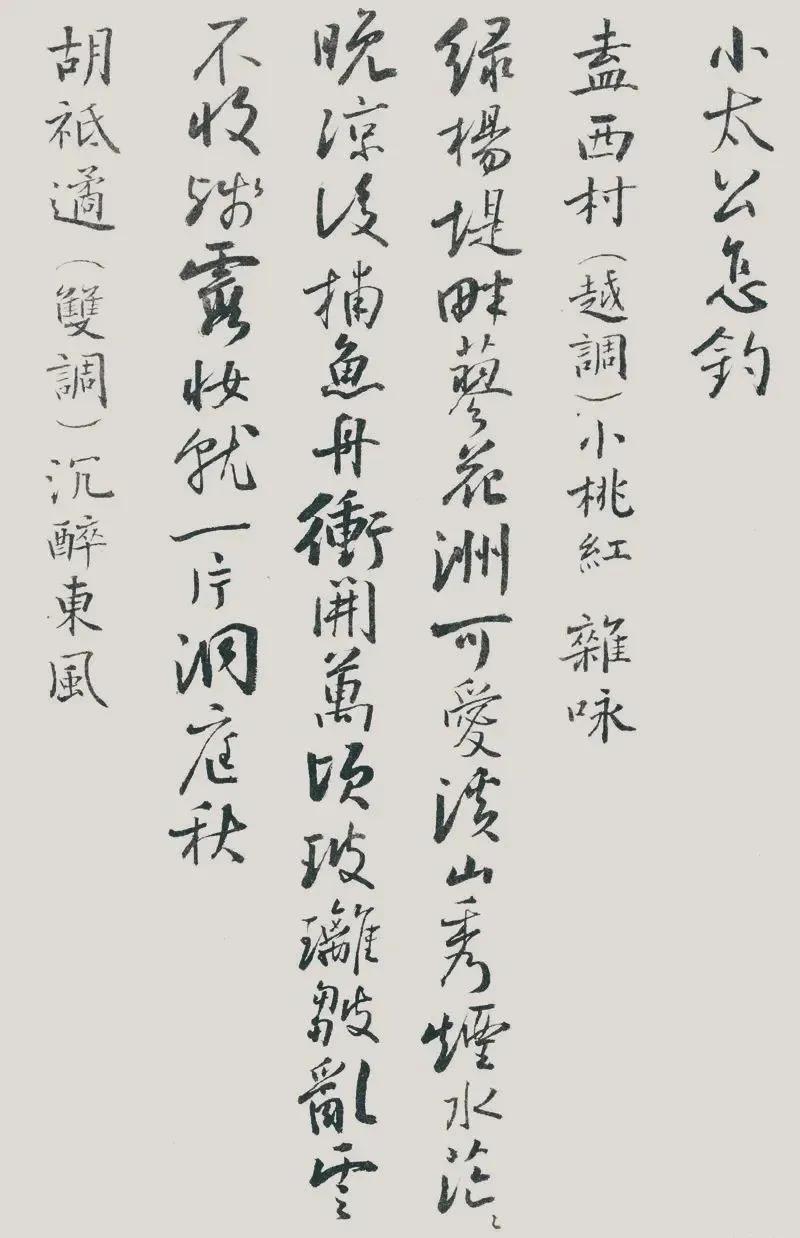 小太公怎釣
盍西村（越調）小桃紅 雜咏
绿楊堤畔蓼花洲可愛溪山秀煙水茫〻
晚凉後捕魚舟衝開萬頃玻璃皺亂雲
不收殘霞妝就一片洞庭秋
胡祗遹（雙調）沉醉東風